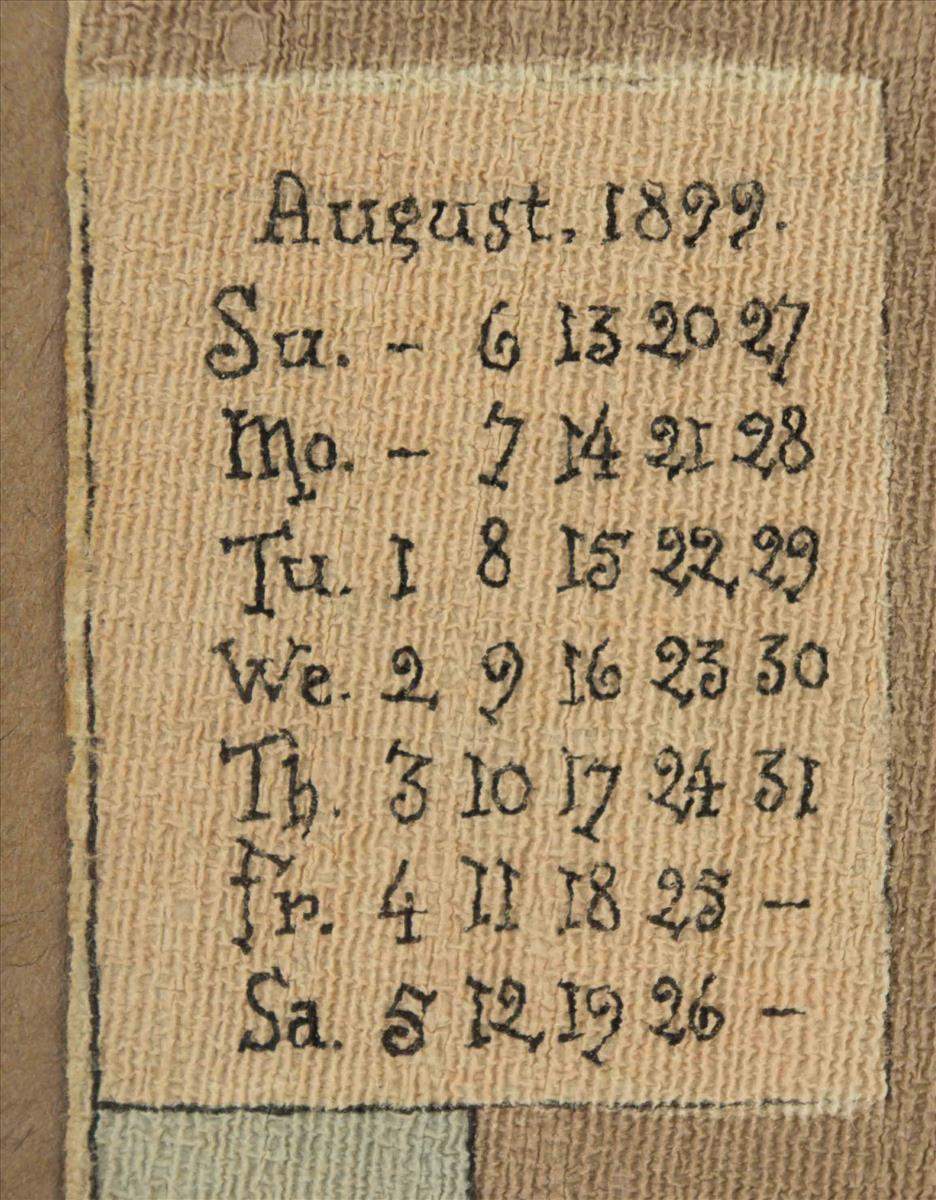 August, 1899.
Su. - 6 13 20 27
Mo. - 7 14 21 28
Tu. 1 8 15 22 29
We. 2 9 16 23 30
Th. 3 10 17 24 31
Fr. 4 11 18 25 -
Sa. 5 12 19 26 -